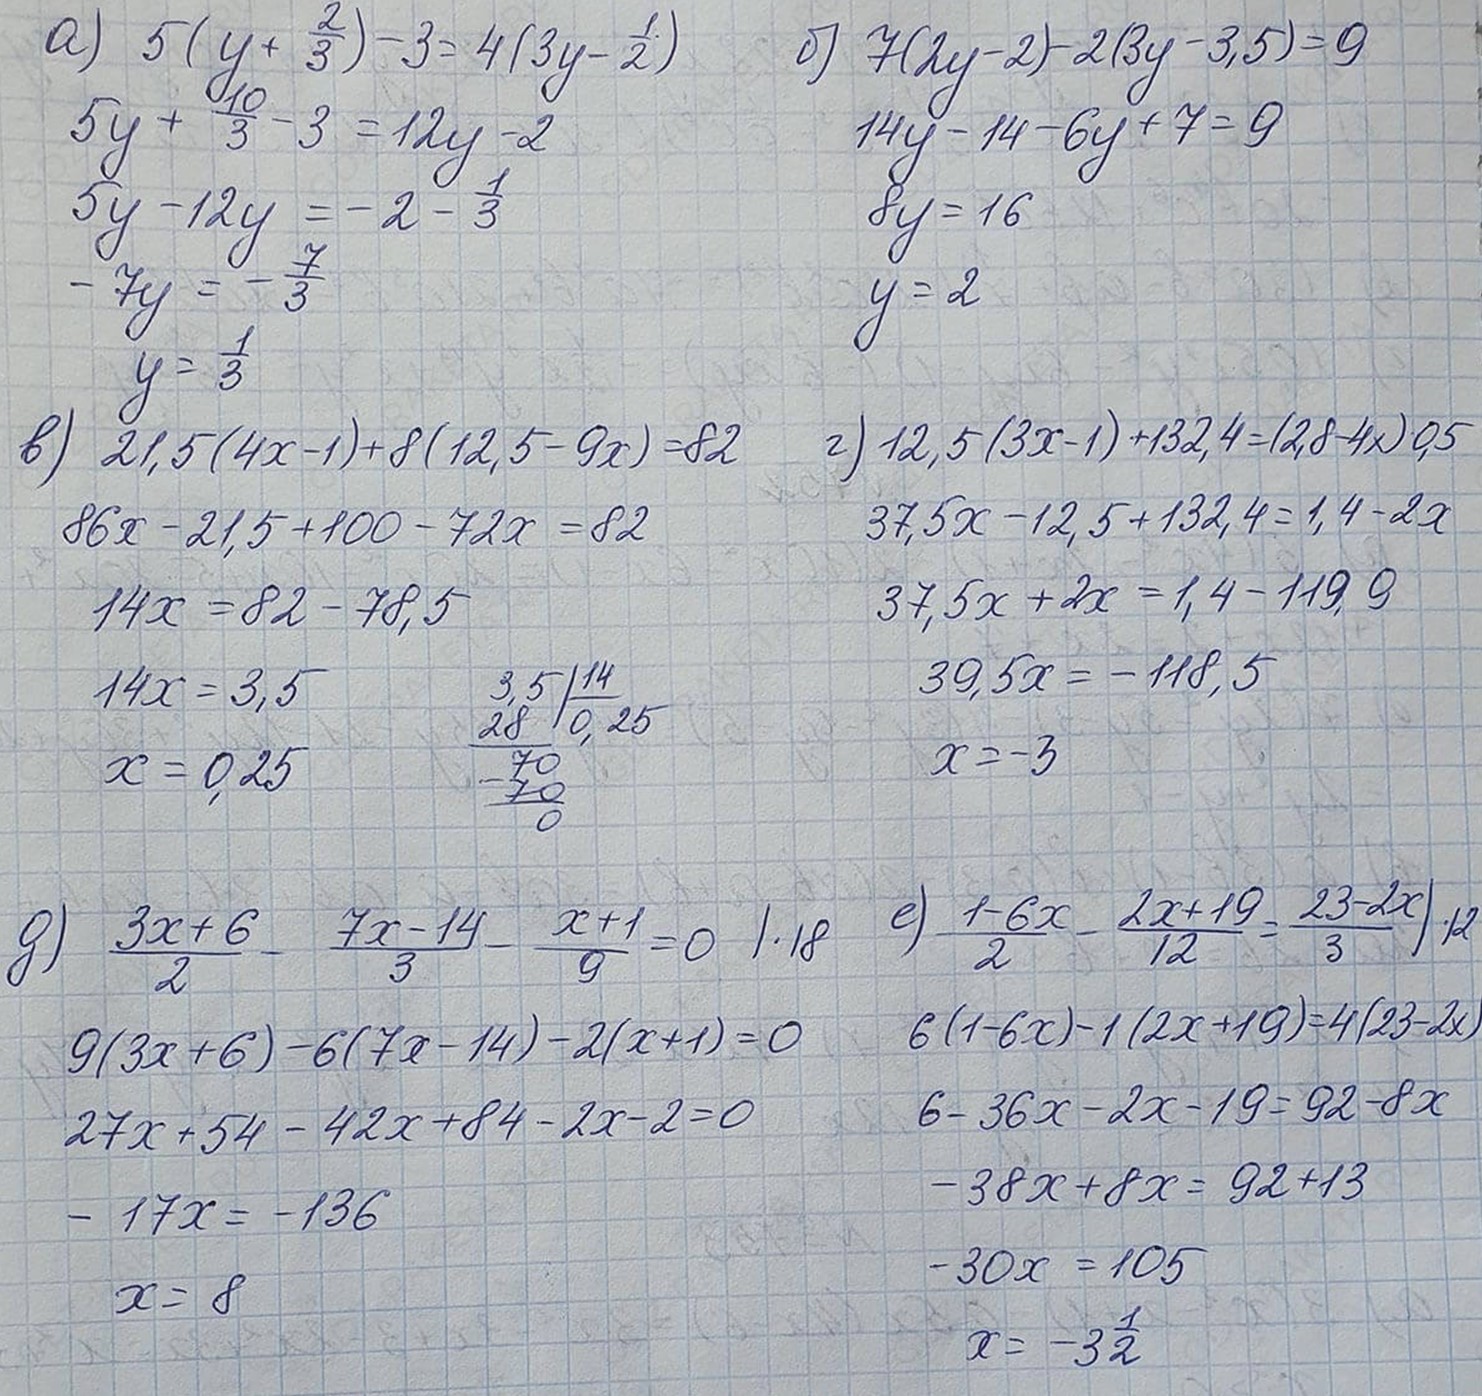 а) 5(y + 2/3) - 3 = 4(3y - 1/2)
5y + 10/3 - 3 = 12y - 2
5y - 12y = -2 - 1/3
-7y = -7/3
y = 1/3
б) 7(2y-2)-2(3y-3,5)=9
14y-14-6y+7=9
8y=16
y=2
в) 21,5(4x-1)+8(12,5-9x)=82
86x-21,5+100-72x=82
14x=82-78,5
14x=3,5
x=0,25
3,5 | 14
28 | 0,25
70
-70
0
г) 12,5(3x-1)+132,4=(2,8-4x)0,5
37,5x-12,5+132,4=1,4-2x
37,5x+2x=1,4-119,9
39,5x=-118,5
x=-3
д) (3x+6)/2 - (7x-14)/3 - (x+1)/9 = 0 |·18
9(3x+6)-6(7x-14)-2(x+1)=0
27x+54-42x+84-2x-2=0
-17x=-136
x=8
е) (1-6x)/2 - (2x+19)/12 = (23-2x)/3 |·12
6(1-6x)-1(2x+19)=4(23-2x)
6-36x-2x-19=92-8x
-38x+8x=92+13
-30x=105
x=-3 1/2